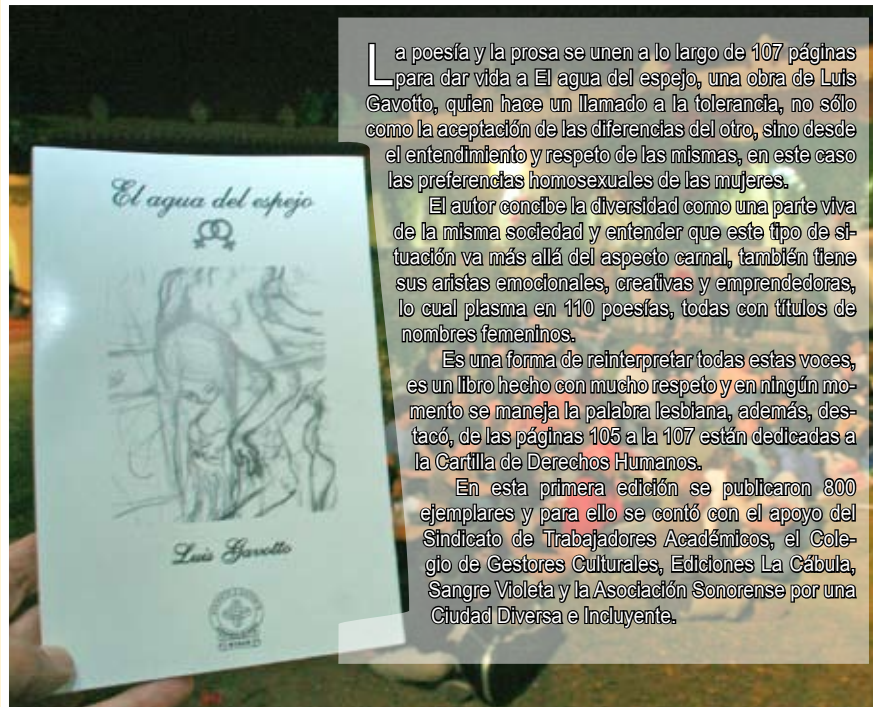 El agua del espejo
Luis Gavotto
La poesía y la prosa se unen a lo largo de 107 páginas
para dar vida a El agua del espejo, una obra de Luis
Gavotto, quien hace un llamado a la tolerancia, no sólo
como la aceptación de las diferencias del otro, sino desde
el entendimiento y respeto de las mismas, en este caso
las preferencias homosexuales de las mujeres.
El autor concibe la diversidad como una parte viva
de la misma sociedad y entender que este tipo de si-
tuación va más allá del aspecto carnal, también tiene
sus aristas emocionales, creativas y emprendedoras,
lo cual plasma en 110 poesías, todas con títulos de
nombres femeninos.
Es una forma de reinterpretar todas estas voces,
es un libro hecho con mucho respeto y en ningún mo-
mento se maneja la palabra lesbiana, además, des-
tacó, de las páginas 105 a la 107 están dedicadas a
la Cartilla de Derechos Humanos.
En esta primera edición se publicaron 800
ejemplares y para ello se contó con el apoyo del
Sindicato de Trabajadores Académicos, el Cole-
gio de Gestores Culturales, Ediciones La Cábula,
Sangre Violeta y la Asociación Sonorense por una
Ciudad Diversa e Incluyente.